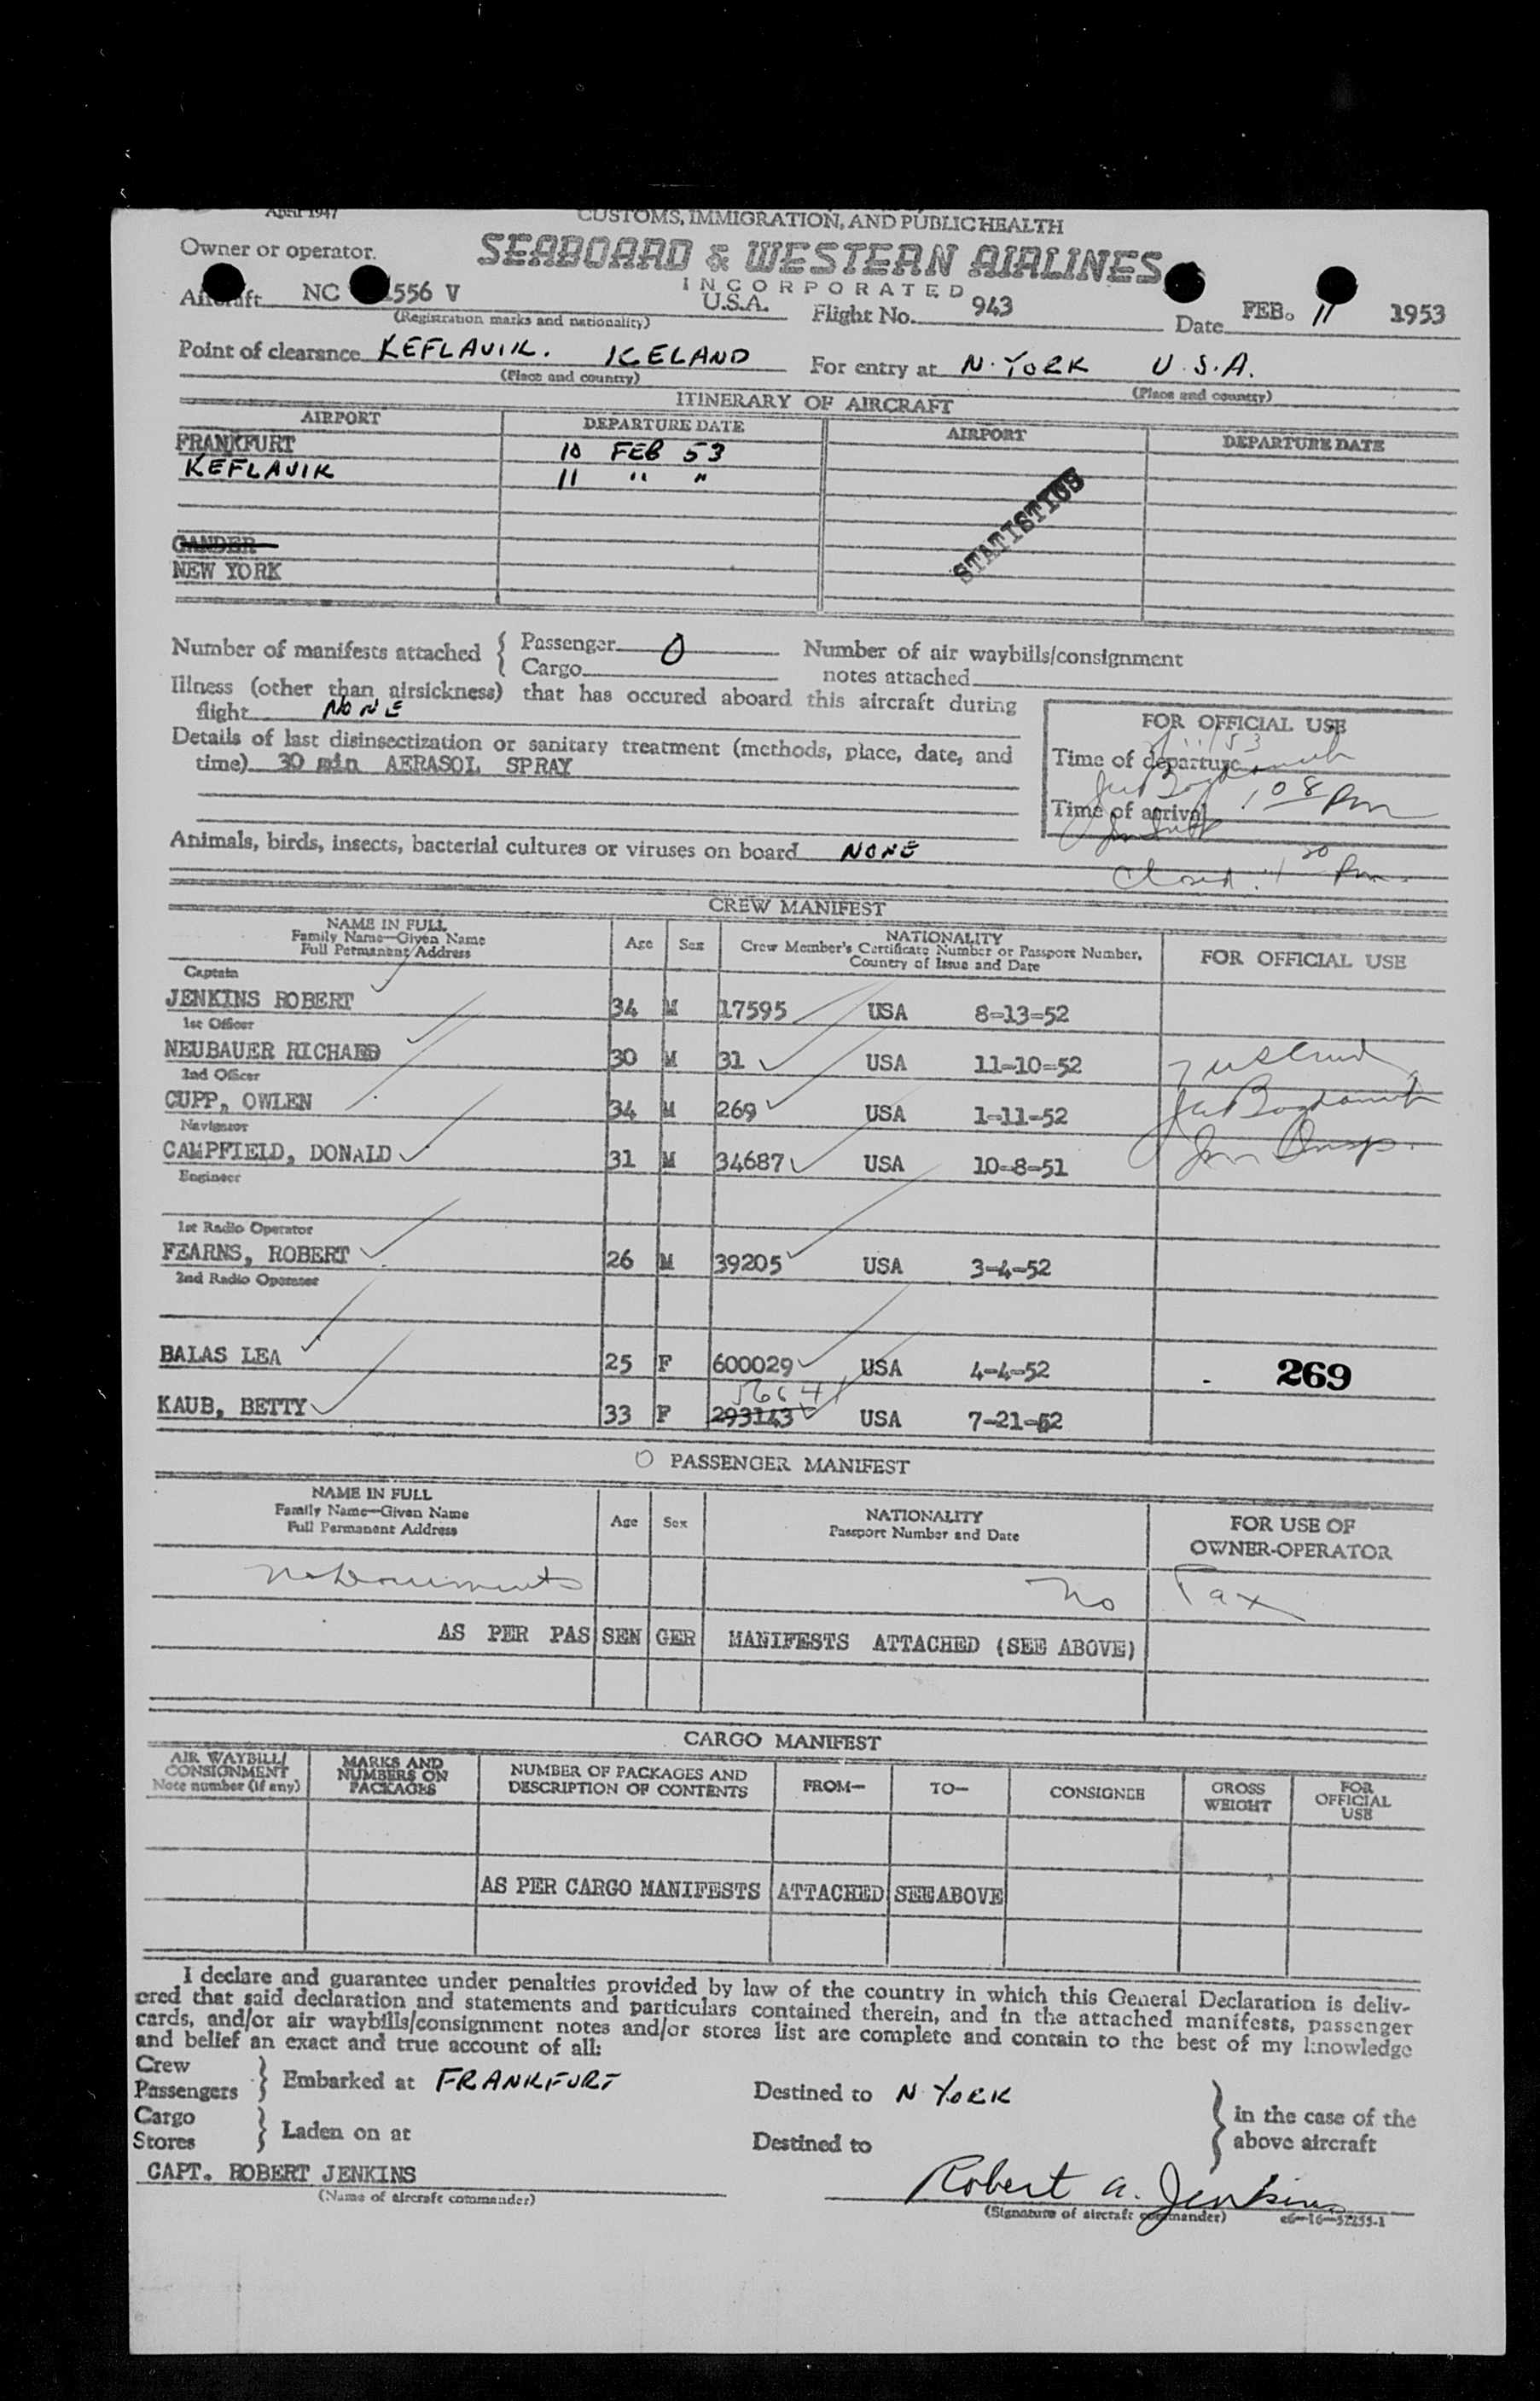 April 1947
CUSTOMS, IMMIGRATION, AND PUBLIC HEALTH
Owner or operator.
SEABOARD & WESTERN AIRLINES
INCORPORATED
Aircraft NC 1556 V U.S.A. Flight No. 943 Date FEB. 11 1953
(Registration marks and nationality)
Point of clearance KEFLAVIK. ICELAND For entry at N. YORK U.S.A.
(Place and country) (Place and country)
ITINERARY OF AIRCRAFT
AIRPORT DEPARTURE DATE AIRPORT DEPARTURE DATE
FRANKFURT 10 FEB 53
KEFLAVIK 11 " "
STATISTICS
GANDER
NEW YORK
Number of manifests attached { Passenger 0 Number of air waybills/consignment
Cargo notes attached
Illness (other than airsickness) that has occured aboard this aircraft during
flight NONE
FOR OFFICIAL USE
Details of last disinsectization or sanitary treatment (methods, place, date, and
time) 30 min AERASOL SPRAY
Time of departure
Time of arrival 1 08 Pm
Animals, birds, insects, bacterial cultures or viruses on board NONE
Closed 1 30 Pm
CREW MANIFEST
NAME IN FULL
Family Name—Given Name
Full Permanent Address
Age Sex
NATIONALITY
Crew Member's Certificate Number or Passport Number,
Country of Issue and Date
FOR OFFICIAL USE
Captain
JENKINS ROBERT 34 M 17595 USA 8-13-52
1st Officer
NEUBAUER RICHARD 30 M 31 USA 11-10-52
2nd Officer
CUPP, OWLEN 34 M 269 USA 1-11-52
Navigator
CAMPFIELD, DONALD 31 M 34687 USA 10-8-51
Engineer
1st Radio Operator
FEARNS, ROBERT 26 M 39205 USA 3-4-52
2nd Radio Operator
BALAS LEA 25 F 600029 USA 4-4-52
269
56641
KAUB, BETTY 33 F 293143 USA 7-21-52
O PASSENGER MANIFEST
NAME IN FULL
Family Name—Given Name
Full Permanent Address
Age Sex
NATIONALITY
Passport Number and Date
FOR USE OF
OWNER-OPERATOR
No Documents No Pax
AS PER PAS SEN GER MANIFESTS ATTACHED (SEE ABOVE)
CARGO MANIFEST
AIR WAYBILL/
CONSIGNMENT
Note number (if any)
MARKS AND
NUMBERS ON
PACKAGES
NUMBER OF PACKAGES AND
DESCRIPTION OF CONTENTS
FROM— TO— CONSIGNEE
GROSS
WEIGHT
FOR
OFFICIAL
USE
AS PER CARGO MANIFESTS ATTACHED SEE ABOVE
I declare and guarantee under penalties provided by law of the country in which this General Declaration is deliv-
ered that said declaration and statements and particulars contained therein, and in the attached manifests, passenger
cards, and/or air waybills/consignment notes and/or stores list are complete and contain to the best of my knowledge
and belief an exact and true account of all:
Crew
Passengers } Embarked at FRANKFURT Destined to N. YORK
Cargo
Stores } Laden on at Destined to
} in the case of the
above aircraft
CAPT. ROBERT JENKINS Robert A. Jenkins
(Name of aircraft commander) (Signature of aircraft commander) c6—16—52255-1